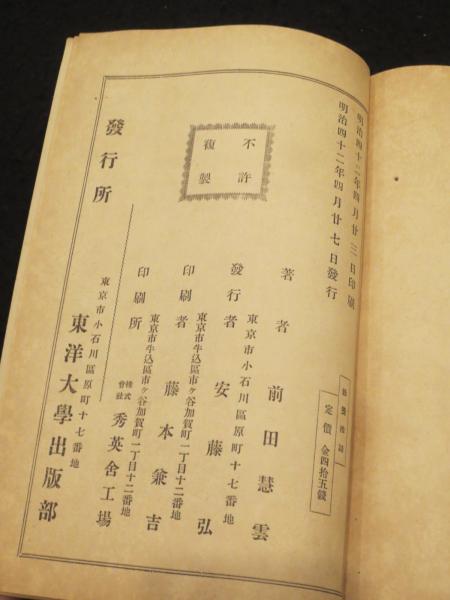 明治四十二年四月廿三日印刷
明治四十二年四月廿七日發行
定價 金四拾五錢
不許
複製
著者 前田慧雲
東京市小石川區原町十七番地
發行者 安藤弘
東京市牛込區市ヶ谷加賀町一丁目十二番地
印刷者 藤本兼吉
東京市牛込區市ヶ谷加賀町一丁目十二番地
印刷所 株式會社 秀英舍工場
發行所
東京市小石川區原町十七番地
東洋大學出版部